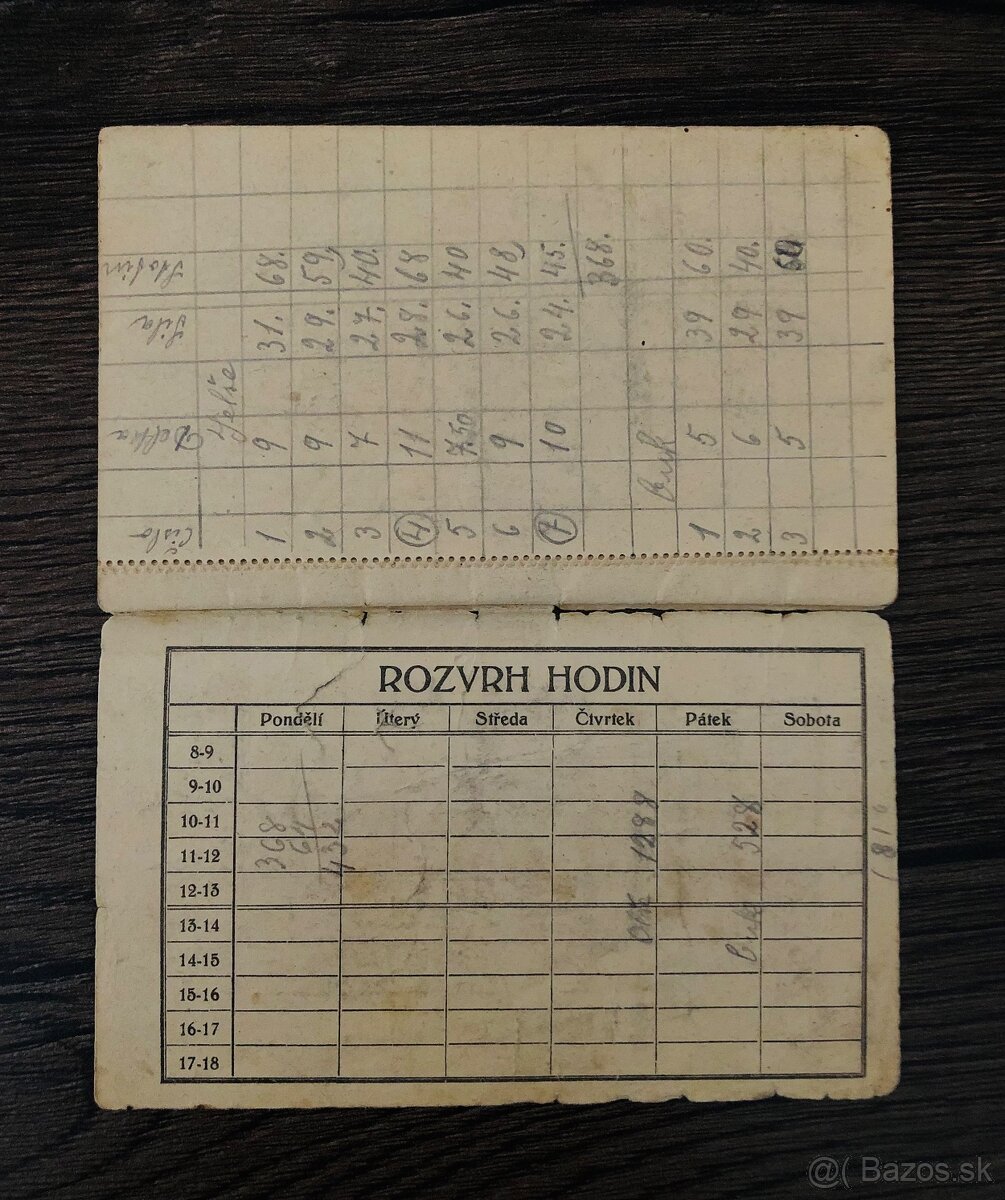 Číslo Delka Sila
1 9 31. 68.
2 9 29. 59,
3 7 27. 40.
4 11 28. 68
5 7 50 26. 40
6 9 26. 48
7 10 24. 45.
368.
Buk
1 5 39 60.
2 6 29 40.
3 5 39
ROZVRH HODIN
Pondělí Úterý Středa Čtvrtek Pátek Sobota
8-9
9-10
10-11
11-12
12-13
13-14
14-15
15-16
16-17
17-18
368
64
432
1288
Buk 528
@( Bazos.sk